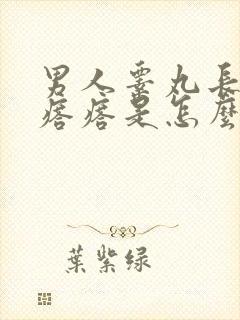 男人睪丸長
痞痞是怎麼
葉紫绿